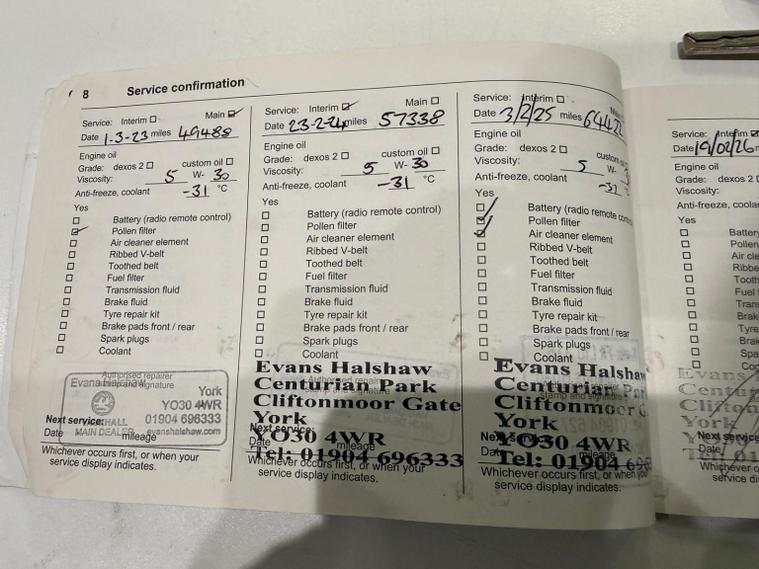 8 Service confirmation
Service: Interim Main
Date 1-3-23 miles 49488
Engine oil
Grade: dexos 2 custom oil
Viscosity: 5 W- 30
Anti-freeze, coolant -31 °C
Yes
Battery (radio remote control)
Pollen filter
Air cleaner element
Ribbed V-belt
Toothed belt
Fuel filter
Transmission fluid
Brake fluid
Tyre repair kit
Brake pads front / rear
Spark plugs
Coolant
Authorised repairer
Evans Halshaw
York
YO30 4WR
01904 696333
MAIN DEALER evanshalshaw.com
Next service:
Date mileage
Whichever occurs first, or when your
service display indicates.
Service: Interim Main
Date 23-2-24 miles 57338
Engine oil
Grade: dexos 2 custom oil
Viscosity: 5 W- 30
Anti-freeze, coolant -31 °C
Yes
Battery (radio remote control)
Pollen filter
Air cleaner element
Ribbed V-belt
Toothed belt
Fuel filter
Transmission fluid
Brake fluid
Tyre repair kit
Brake pads front / rear
Spark plugs
Coolant
Evans Halshaw
Centurian Park
Cliftonmoor Gate
York
YO30 4WR
Tel: 01904 696333
Next service:
Date
Whichever occurs first, or when your
service display indicates.
Service: Interim
Date 3/2/25 miles
Engine oil
Grade: dexos 2 custom oil
Viscosity: 5 W-
Anti-freeze, coolant
Yes
Battery (radio remote
Pollen filter
Air cleaner element
Ribbed V-belt
Toothed belt
Fuel filter
Transmission fluid
Brake fluid
Tyre repair kit
Brake pads front / rear
Spark plugs
Coolant
Evans Halshaw
Centurian
Cliftonmoor
York
YO30 4WR
Tel: 01904
Next service:
mileage
Whichever occurs first, or when you
service display indicates.
Service: Interim
Date 19/02/26
Engine oil
Grade: dexos 2
Viscosity:
Anti-freeze,
Yes
Next service
Date
Whichever
service